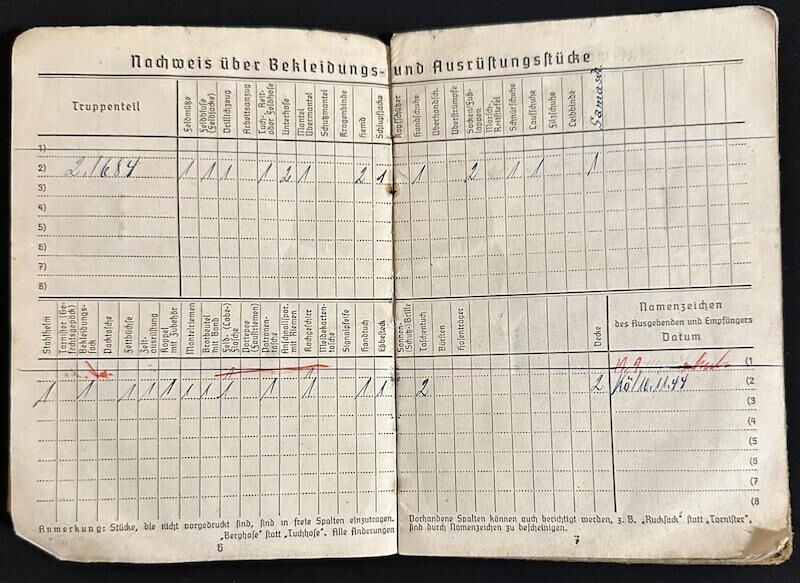 Nachweis über Bekleidungs- und Ausrüstungsstücke
Truppenteil
Feldmütze
Feldbluse (Feldjacke)
Drillichzeug
Arbeitsanzug
Tuch-, Reit- oder Feldhose
Unterhose
Mantel Übermantel
Schutzmantel
Kragenbinde
Hemd
Schlupfjacke
Kopfschützer
Handschuhe
Überhandsch.
Überstrümpfe
Socken/Fußlappen
Marsch-, Reitstiefel
Schnürschuhe
Laufschuhe
Filzschuhe
Leibbinde
Gamasch
1)
2) 2.1684 1 1 1 1 2 1 2 1 1 2 1 1 1
3)
4)
5)
6)
7)
8)
Stahlhelm
Tornister (Gefechtsgepäck)
Bekleidungssack
Packtasche
Fettbüchse
Zeltausrüstung
Koppel mit Zubehör
Mantelriemen
Brotbeutel mit Band
Feld- (Labe-) Flasche
Portepee (Faustriemen)
Patronentasche
Anschnallspor. mit Riemen
Kochgeschirr
Meldekartentasche
Signalpfeife
Handtuch
Eßbesteck
Sonnen- (Schutz-) Brille
Taschentuch
Bürsten
Hosenträger
Decke
Namenzeichen
des Ausgebenden und Empfängers
Datum
(1
1 1 1 1 1 1 1 1 1 1 1 1 2 2 10.11.44 (2
(3
(4
(5
(6
(7
(8
Anmerkung: Stücke, die nicht vorgedruckt sind, sind in freie Spalten einzutragen.
„Berghose" statt „Tuchhose". Alle Änderungen
Vorhandene Spalten können auch berichtigt werden, z. B. „Rucksack" statt „Tornister",
sind durch Namenzeichen zu bescheinigen.
6
7